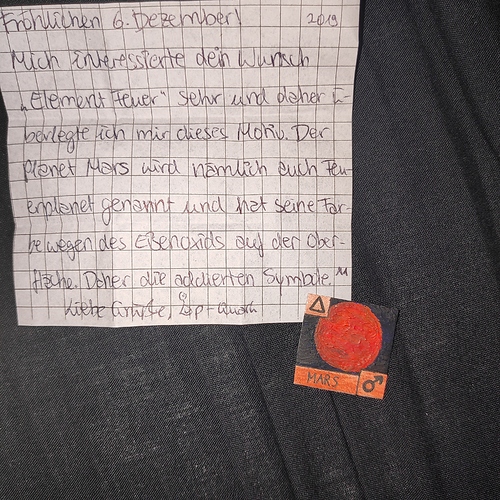 Fröhlichen 6. Dezember! 2019
Mich interessierte dein Wunsch
„Element Feuer" sehr und daher ü-
berlegte ich mir dieses Motiv. Der
Planet Mars wird nämlich auch Feu-
erplanet genannt und hat seine Far-
be wegen des Eisenoxids auf der Ober-
fläche. Daher die addierten Symbole.
Liebe Grüße,
MARS ♂